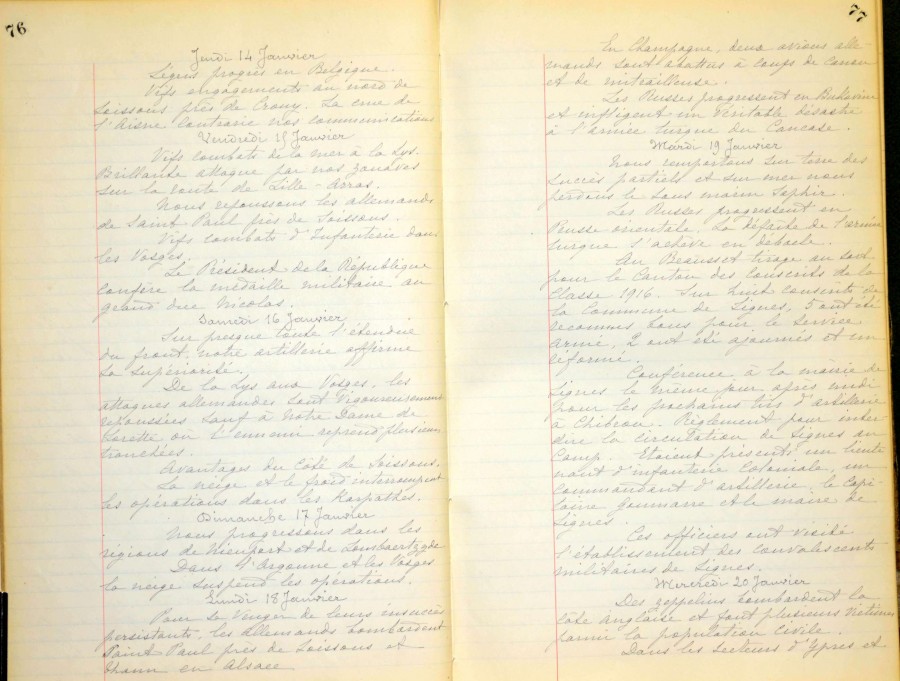 76
Jeudi 14 Janvier
Légers progrès en Belgique.
Vifs engagements au nord de
Soissons près de Crouy. La crue de
l'Aisne contrarie nos communications
Vendredi 15 Janvier
Vifs combats de la mer à la Lys.
Brillante attaque par nos zouaves
sur la route de Lille-Arras.
Nous repoussons les allemands
de Saint Paul près de Soissons.
Vifs combats d'Infanterie dans
les Vosges.
Le Président de la République
confère la médaille militaire au
grand duc Nicolas.
Samedi 16 Janvier
Sur presque toute l'étendue
du front notre artillerie affirme
sa supériorité.
De la Lys aux Vosges, les
attaques allemandes sont vigoureusement
repoussées sauf à Notre Dame de
Lorette où l'ennemi reprend plusieurs
tranchées.
Avantages du côté de Soissons.
La neige et le froid interrompent
les opérations dans les Karpathes.
Dimanche 17 Janvier
Nous progressons dans les
régions de Nieuport et de Lombaertzyde
Dans l'Argonne et les Vosges
la neige suspend les opérations.
Lundi 18 Janvier
Pour se venger de leurs insuccès
persistants, les allemands bombardent
Saint Paul près de Soissons et
Thann en Alsace
77
En Champagne, deux avions alle-
mands sont abattus à coups de canon
et de mitrailleuse.
Les Russes progressent en Bukovine
et infligent un véritable désastre
à l'armée turque du Caucase.
Mardi 19 Janvier
Nous remportons sur terre des
succès partiels et sur mer nous
perdons le sous marin Saphir.
Les Russes progressent en
Prusse orientale. La défaite de l'armée
turque s'achève en débacle.
Au Beausset tirage au sort
pour le Canton des conscrits de la
Classe 1916. Sur huit conscrits de
la Commune de Signes, 5 ont été
reconnus bons pour le service
armé, 2 ont été ajournés et un
réformé.
Conférence à la mairie de
Signes le même jour après midi
pour les prochains tirs d'artillerie
à Chibron. Règlement pour inter-
dire la circulation de Signes au
Camp. Etaient présents: un lieute
nant d'infanterie coloniale, un
commandant d'artillerie, le Capi-
taine et le maire de
Signes.
Ces officiers ont visité
l'établissement des convalescents
militaires de Signes.
Mercredi 20 Janvier
Des zeppelins bombardent la
côte anglaise et font plusieurs victimes
parmi la population civile.
Dans les secteurs d'Ypres et